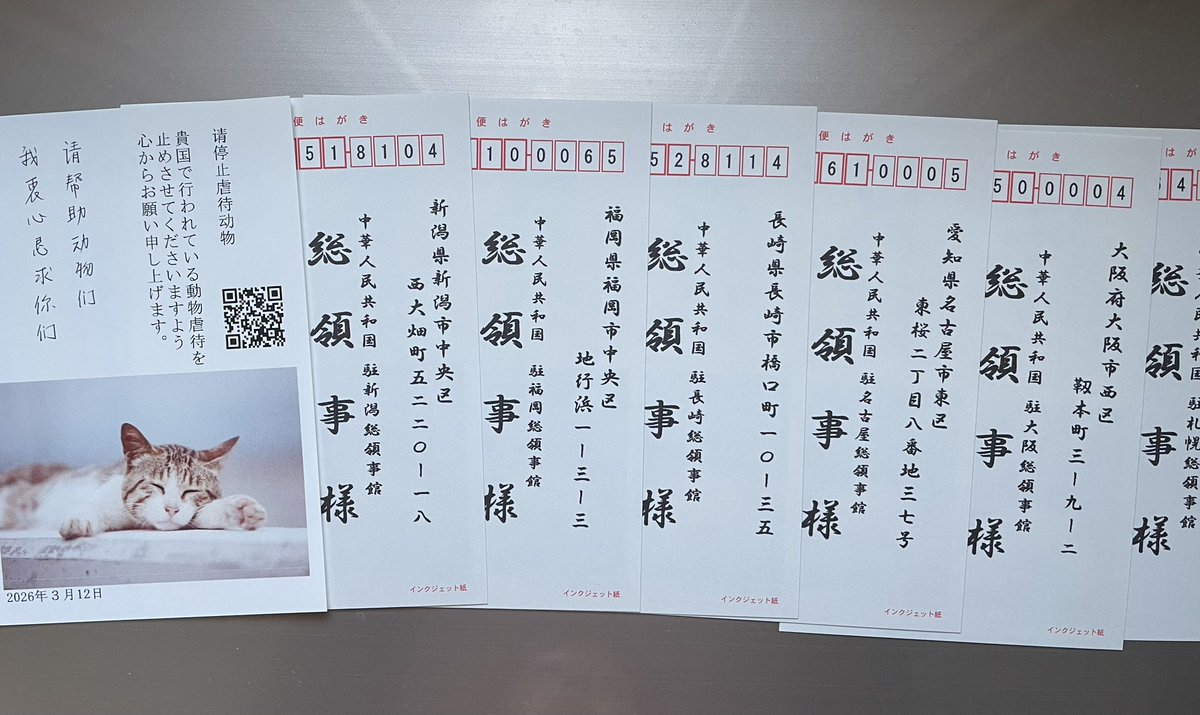 请帮助动物们
我衷心恳求你们
请停止虐待动物
貴国で行われている動物虐待を
止めさせてくださいますよう
心からお願い申し上げます。
2026年3月12日
便はがき
51-8104
新潟県新潟市中央区
西大畑町五二二〇ー一八
中華人民共和国 駐新潟総領事館
総領事様
インクジェット紙
便はがき
10-0065
福岡県福岡市中央区
地行浜一ー三ー三
中華人民共和国 駐福岡総領事館
総領事様
インクジェット紙
はがき
52-8114
長崎県長崎市橋口町一〇ー三五
中華人民共和国 駐長崎総領事館
総領事様
インクジェット紙
便はがき
61-0005
愛知県名古屋市東区
東桜二丁目八番地三七号
中華人民共和国 駐名古屋総領事館
総領事様
インクジェット紙
はがき
50-0004
大阪府大阪市西区
靱本町三ー九ー二
中華人民共和国 駐大阪総領事館
総領事様
インクジェット紙
はが
4
駐札幌総領事館
総領事様